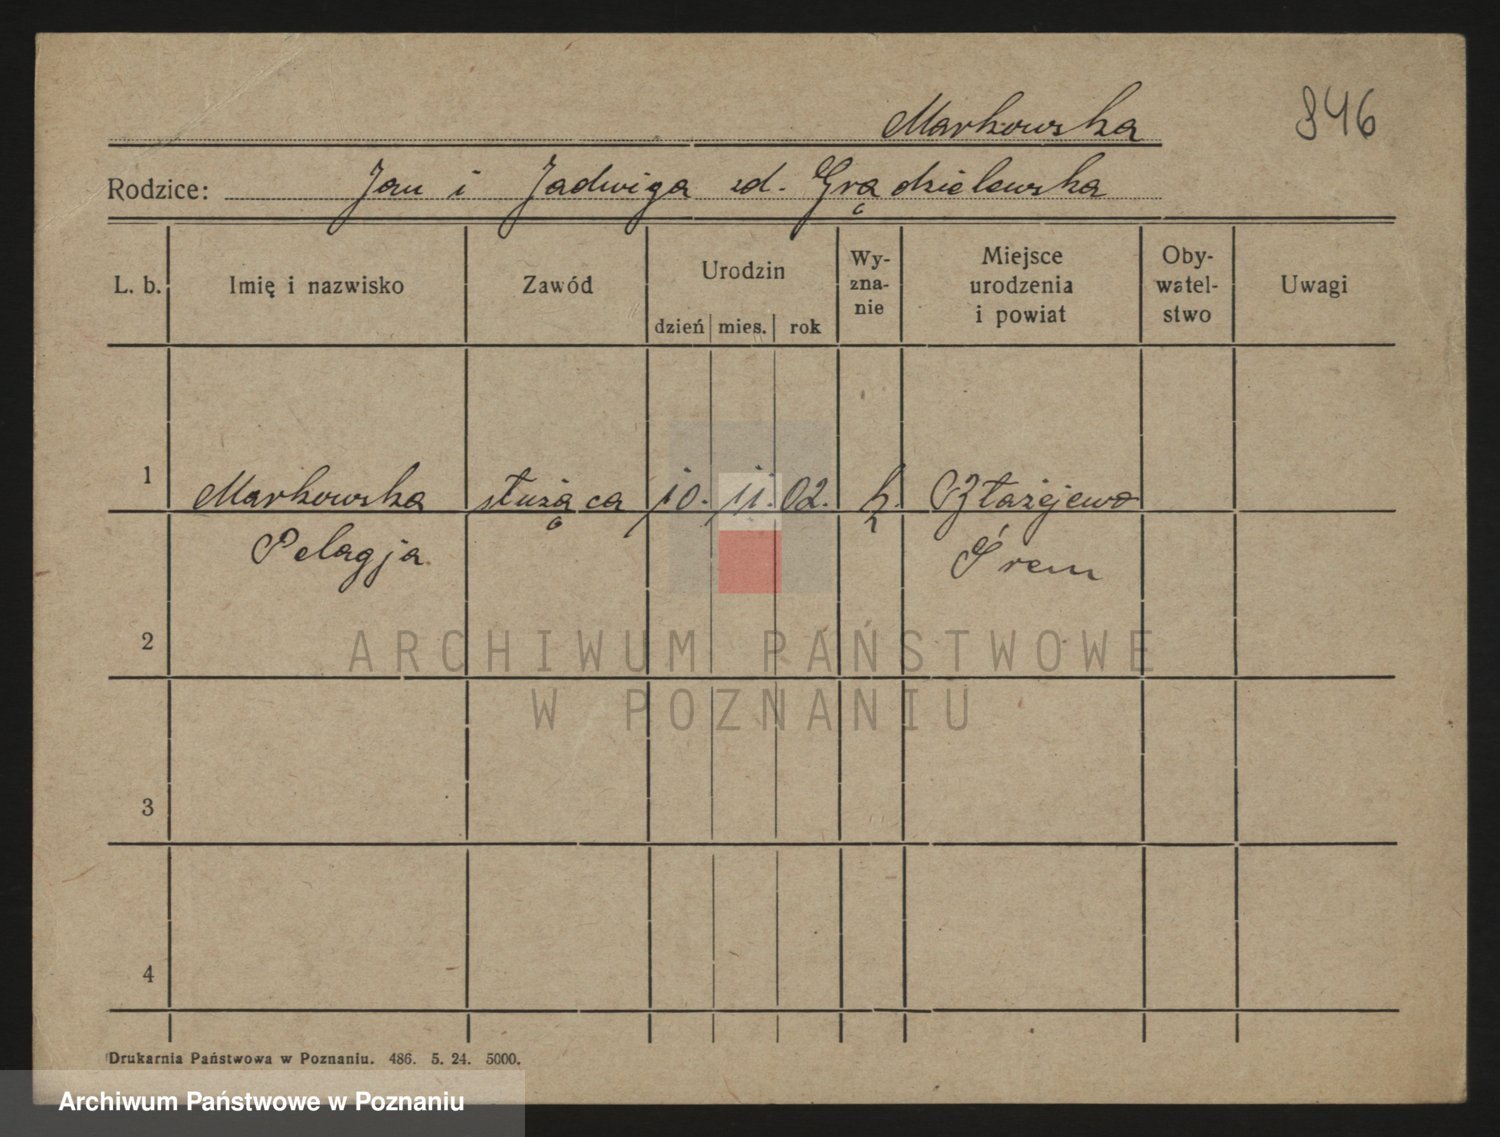 Markowska 846
Rodzice: Jan i Jadwiga zd. Grądzielewska
L. b. Imię i nazwisko Zawód Urodzin dzień mies. rok Wyznanie Miejsce urodzenia i powiat Obywatelstwo Uwagi
1 Markowska służąca 10. 11. 02. k. Błażejewo
Pelagja Śrem
2
ARCHIWUM PAŃSTWOWE
W POZNANIU
3
4
Drukarnia Państwowa w Poznaniu. 486. 5. 24. 5000.
Archiwum Państwowe w Poznaniu